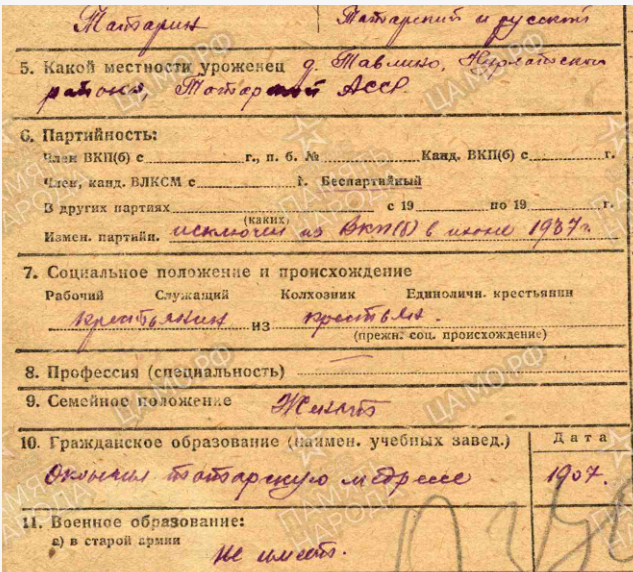 Татарин Татарский и русский
5. Какой местности уроженец д. Тавлино, Нурлатского
района, Татарской АССР.
6. Партийность:
Член ВКП(б) с г., п. б. № Канд. ВКП(б) с г.
Член, канд. ВЛКСМ с г. Беспартийный
В других партиях с 19 по 19 г.
(каких)
Измен. партийн. исключен из ВКП(б) в июне 1937г.
7. Социальное положение и происхождение
Рабочий Служащий Колхозник Единоличн. крестьянин
крестьянин из крестьян.
(прежн. соц. происхождение)
8. Профессия (специальность)
9. Семейное положение Женат
10. Гражданское образование (наимен. учебных завед.) Дата
Окончил татарскую медрессе 1907.
11. Военное образование:
а) в старой армии
не имеет.
ЦАМО.РФ
ПАМЯТЬ
НАРОДА